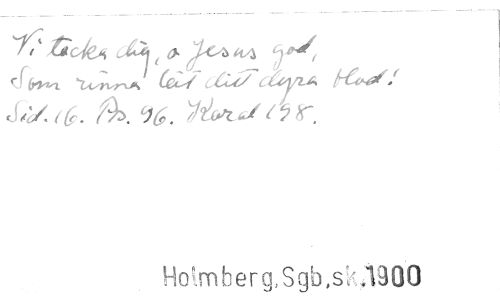 Vi tacka dig, o Jesus god,
Som rinna lät ditt dyra blod!
Sid. 16. Ps. 96. Koral 198.
Holmberg,Sgb,sk.1900